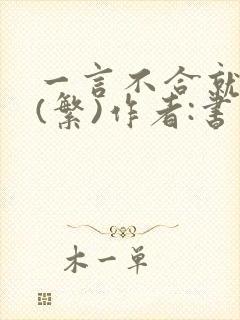 一言不合就
(繁)作者:書
木一单